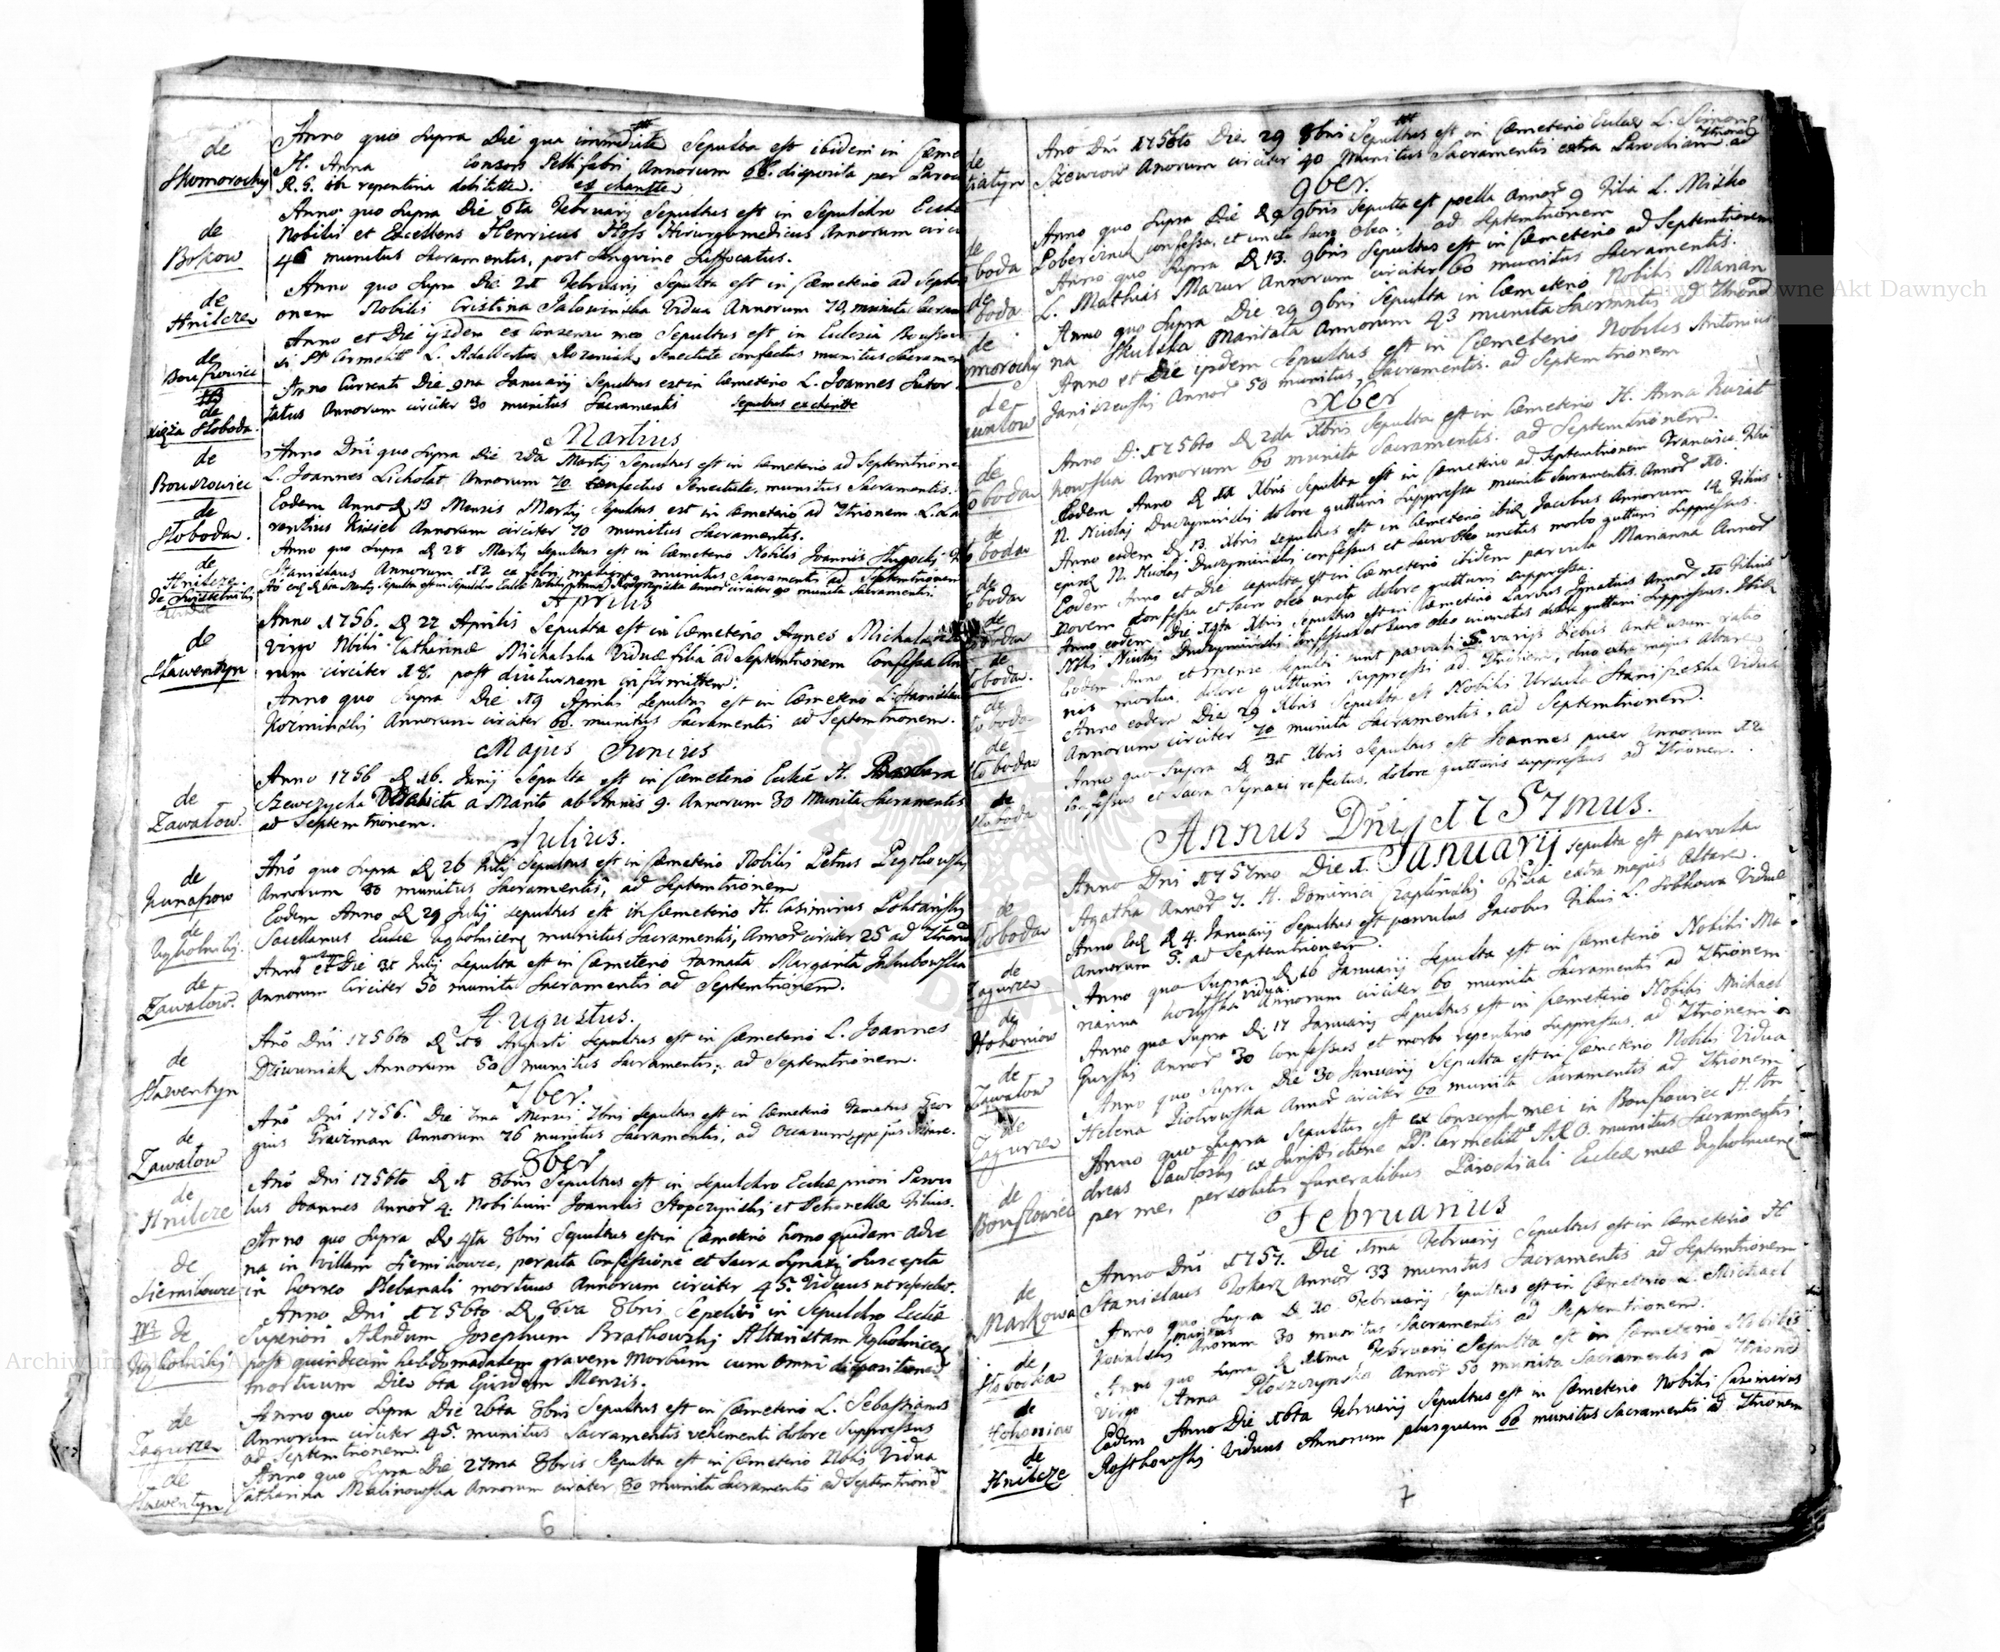 de
Skomorochy
Anno quo supra Die qua immediate Sepulta est ibidem in Cæme
H. Anna consors Pellifabri Annorum 66. disposita per Paroc
R. G. in repentina debilitte. ex charitte
de
Bokow
Anno quo supra Die 6ta Februarij Sepultus est in Sepulchro Eccle
Nobilis et Excellens Henricus Hofs Hirurgomedicus Annorum circi
46 munitus Sacramentis, post sanguine suffocatus.
de
Hnilcze
Anno quo supra Die 21 Februarij Sepulta est in Cæmeterio ad Septem
onem Nobilis Cristina Jalowinska Vidua Annorum 70, munita Sacram
de
Bouszowiec
Anno et Die ijsdem ex Consensu meo Sepultus est in Eclesia Bouszow
si PP Carmelitt L. Adalbertus Rozaniak, Senectute confectus munitus Sacramen
de
xięża Słoboda
Anno Currenti Die 9na Januarij Sepultus est in Cæmeterio L. Joannes Sutor
tatus Annorum circiter 30 munitus Sacramentis sepultus ex charitte
Martius
de
Bouszowiec
Anno Dni quo supra Die 2da Martij Sepultus est in Cæmeterio ad Septemtrione
L. Joannes Licholat, Annorum 70 confectus Senectute, munitus Sacramentis.
de
Słoboda.
Eodem Anno D 13 Mensis Martij Sepultus est in Cæmeterio ad Ytrionem L. La
rentius Kisiel Annorum circiter 70 munitus Sacramentis.
de
Hnilcze
Anno quo supra D 28 Martij Sepultus est in Cæmeterio Nobilis Joannis
Stanislaus Annorum 12 ex febri maligna munitus Sacramentis ad Septemtrionem
Aprilis
de
Sławentyn
Anno 1756. D 22 Aprilis Sepulta est in Cæmeterio Agnes Michalska
virgo Nbilis Catharinæ Michalska Viduæ filia ad Septemtrionem Confessa An
rum circiter 18. post diuturnam infirmittem.
Anno quo supra Die 19 Aprilis Sepultus est in Cæmeterio L. Stanislaus
Kozminski Annorum circiter 60. munitus Sacramentis ad Septemtrionem.
Majus Junius
de
Zawałow.
Anno 1756 D 16. Junij Sepulta est in Cæmeterio Eccliæ H. Barbara
Szewczycha Derelicta a Marito ab Annis 9. Annorum 30 Munita Sacramentis
ad Septemtrionem.
Julius.
de
Kunaszow
Ano quo supra D 26 Julij Sepultus est in Cæmeterio Nobilis Petrus
Annorum 30 munitus Sacramentis, ad Septemtrionem
de
Ugholniki.
Eodem Anno D 29 Julij sepultus est in Cæmeterio H. Casimirus
Sacellanus Eccliæ munitus Sacramentis, Annor circiter 25 ad Ytrione
de
Zawałow.
Anno et Die 31 Julij Sepulta est in Cæmeterio famata Margarita Jakubowska
Annorum Circiter 50 munita Sacramentis ad Septemtrionem.
Augustus.
de
Sławentyn
Ano Dni 1756to D 18 Augusti Sepultus est in Cæmeterio L. Joannes
Dziwuniak Annorum 50 munitus Sacramentis, ad Septemtrionem.
7ber.
de
Zawałow
Ano Dni 1756. Die 7ma Mensis 7bris Sepultus est in Cæmeterio famatus Geor
gius Grauzman Annorum 76 munitus Sacramentis, ad Occasum
8ber
de
Hnilcze
Ano Dni 1756to D 1 8bris Sepultus est in Sepulchro Eccliæ priori Parvu
lus Joannes Annor 4. Nobilium Joannis Stopczynski et Petronellæ Filius.
de
Siemikowce
Anno quo supra D 4ta 8bris Sepultus est in Cæmeterio homo quidam adve
na in villam Siemikowce, peracta Confessione et Sacra Synaxi suscepta
in horreo Plebanali mortuus Annorum circiter 45. Viduus ut referebat.
de
Ugholniki
Anno Dni 1756to D 8va 8bris Sepelivi in Sepulchro Eccliæ
Superiori Adndum Josephum Bratkowski Altaristam
post quindecim hebdomadalem gravem morbum cum omni dispositione
mortuum Die 6ta Ejusdem Mensis.
de
Zagurze
Anno quo supra Die 26ta 8bris Sepultus est in Cæmeterio L. Sebastianus
Annorum circiter 45. munitus Sacramentis vehementi dolore Suppressus
ad Septemtrionem.
de
Sławentyn
Anno quo supra Die 27ma 8bris Sepulta est in Cæmeterio Nbilis Vidua
Catharina Malinowska Annorum circiter 80 munita Sacramentis ad Septemtrione
6
de
Ano Dni 1756to Die 29 8bris Sepultus est in Cæmeterio Eccliæ L. Simon
Szewcow Anorum circiter 40 Munitus Sacramentis extra Parochiam ad Ytrione
9ber.
de
boda
Anno quo supra Die D 9 9bris Sepulta est poella Annor 9 Filia L. Misko
confessa, et uncta Sacro Oleo: ad Septemtrionem
de
boda
Anno quo supra D 13. 9bris Sepultus est in Cæmeterio ad Septemtrionem
L. Mathias Mazur Annorum circiter 60 munitus Sacramentis.
de
morochy
Anno quo supra Die 29 9bris Sepulta in Cæmeterio Nobilis Marian
na Skulska Maritata Annorum 43 munita Sacrmntis ad Ytrione
de
Anno et Die ijsdem Sepultus est in Cæmeterio Nobilis Antonius
Janiszewski Annor 50 munitus Sacramentis. ad Septemtrionem
Xber
de
boda
Anno D. 1756to D 2da Xbris Sepulta est in Cæmeterio H. Anna Kurat
kowska Annorum 60 munita Sacramentis. ad Septemtrionem.
de
boda
Eodem Anno D 11 Xbris Sepulta est in Cæmeterio ad Septemtrionem Francisca Filia
N. Nicolaj Duczyminski dolore gutturis suppressa munita Sacramentis. Annor 10.
de
boda
Anno eodem D 13. Xbris sepultus est in Cæmeterio ibid Jacobus Annorum 12 Filius
ejusd N. Nicolaj Duczyminski confessus et Sacro Oleo unctus morbo gutturis suppressus.
de
boda
Eodem Anno et Die sepulta est in Cæmeterio ibidem parvula Marianna Annor
Novem Confessa et Sacro oleo uncta dolore gutturis suppressa.
de
boda.
Anno eodem Die 14ta Xbris sepultus est in Cæmeterio Parvus Ignatius Annor 10 Filius
Nblis Nicolaj Duczyminski confessus et Sacro oleo inunctus dolore gutturis suppressus.
de
boda
Eodem Anno et mense sepulti sunt parvuli 5. varijs diebus ante usum ratio
nis mortui dolore gutturis suppressi ad Ytrionem, duo extra majus Altare
de
boda
Anno eodem Die 29 Xbris sepulta est Nobilis Ursula Stanis Vidua
Annorum circiter 70 munita Sacramentis, ad Septemtrionem.
de
Słoboda
Anno quo supra D 31 Xbris Sepultus est Joannes puer Annorum 12
Confessus et Sacra Synaxi refectus, dolore gutturis suppressus ad Ytrionem.
Annus Dni 1757mus.
de
Słoboda
Anno Dni 1757mo Die 1. Januarij sepulta est parvula
Agatha Annor 7. H. Dominici Czaplinski Filia extra majus Altare.
Anno eod D 4. Januarij Sepultus est parvulus Jacobus Filius L. Viduæ
Annorum 5. ad Septemtrionem.
de
Zagurze
Anno quo supra D 16 Januarij Sepulta est in Cæmeterio Nobilis Ma
rianna vidua Annorum circiter 60 munita Sacramentis ad Ytrionem
de
Hohoniow
Anno quo supra D 17 Januarij Sepultus est in Cæmeterio Nobilis Michael
Gurski Annor 30 Confessus et morbo repentino suppressus, ad Ytrionem
de
Zawałow
Anno quo supra Die 30 Januarij Sepulta est in Cæmeterio Nobilis Vidua
Helena Piotrowska Annor circiter 60 munita Sacramentis ad Ytrionem
de
Zagurze
de
Bouszowiec
Anno quo supra Sepultus est ex Consensu mei in Bouszowiec H. An
dreas Pawłoski ex Jurisdictione PP. Carmelitt A.R.O. munitus Sacramentis
per me, persolutis funeralibus Parochiali Eccliæ meæ
Februarius
de
Markowa
Anno Dni 1757. Die 1ma Februarij Sepultus est in Cæmeterio H
Stanislaus Tokarz Annor 33 munitus Sacramentis ad Septemtrionem
de
Słoboda
Anno quo supra D 10 Februarij Sepultus est in Cæmeterio L. Michael
Kowalski Anorum 30 munitus Sacramentis ad Septemtrionem.
de
Hohoniow
Anno quo supra D 11ma Februarij Sepulta est in Cæmeterio Nobilis
virgo Anna Płoszczynska Annor 50 munita Sacramentis ad Ytrione
de
Hnilcze
Eodem Anno Die 16ta Februarij Sepultus est in Cæmeterio Nobilis Casimirus
Rostkowski viduus Annorum plusquam 60 munitus Sacramentis ad Ytrionem
7
Archiwum Główne Akt Dawnych
Archiwum Główne Akt Dawnych